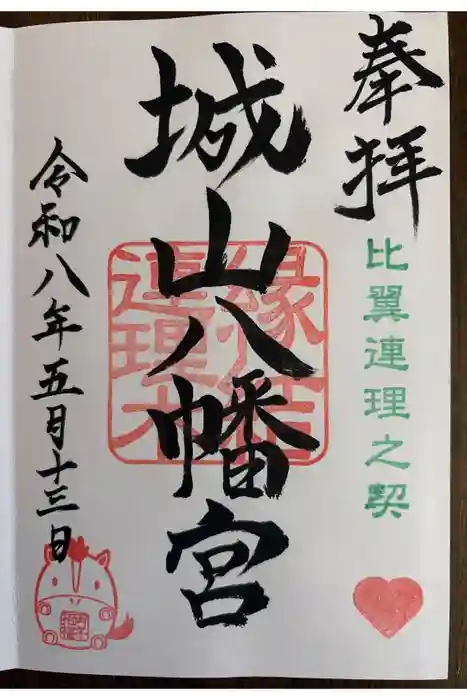 奉拝
比翼連理之契
城山八幡宮
連理木
令和八年五月十三日